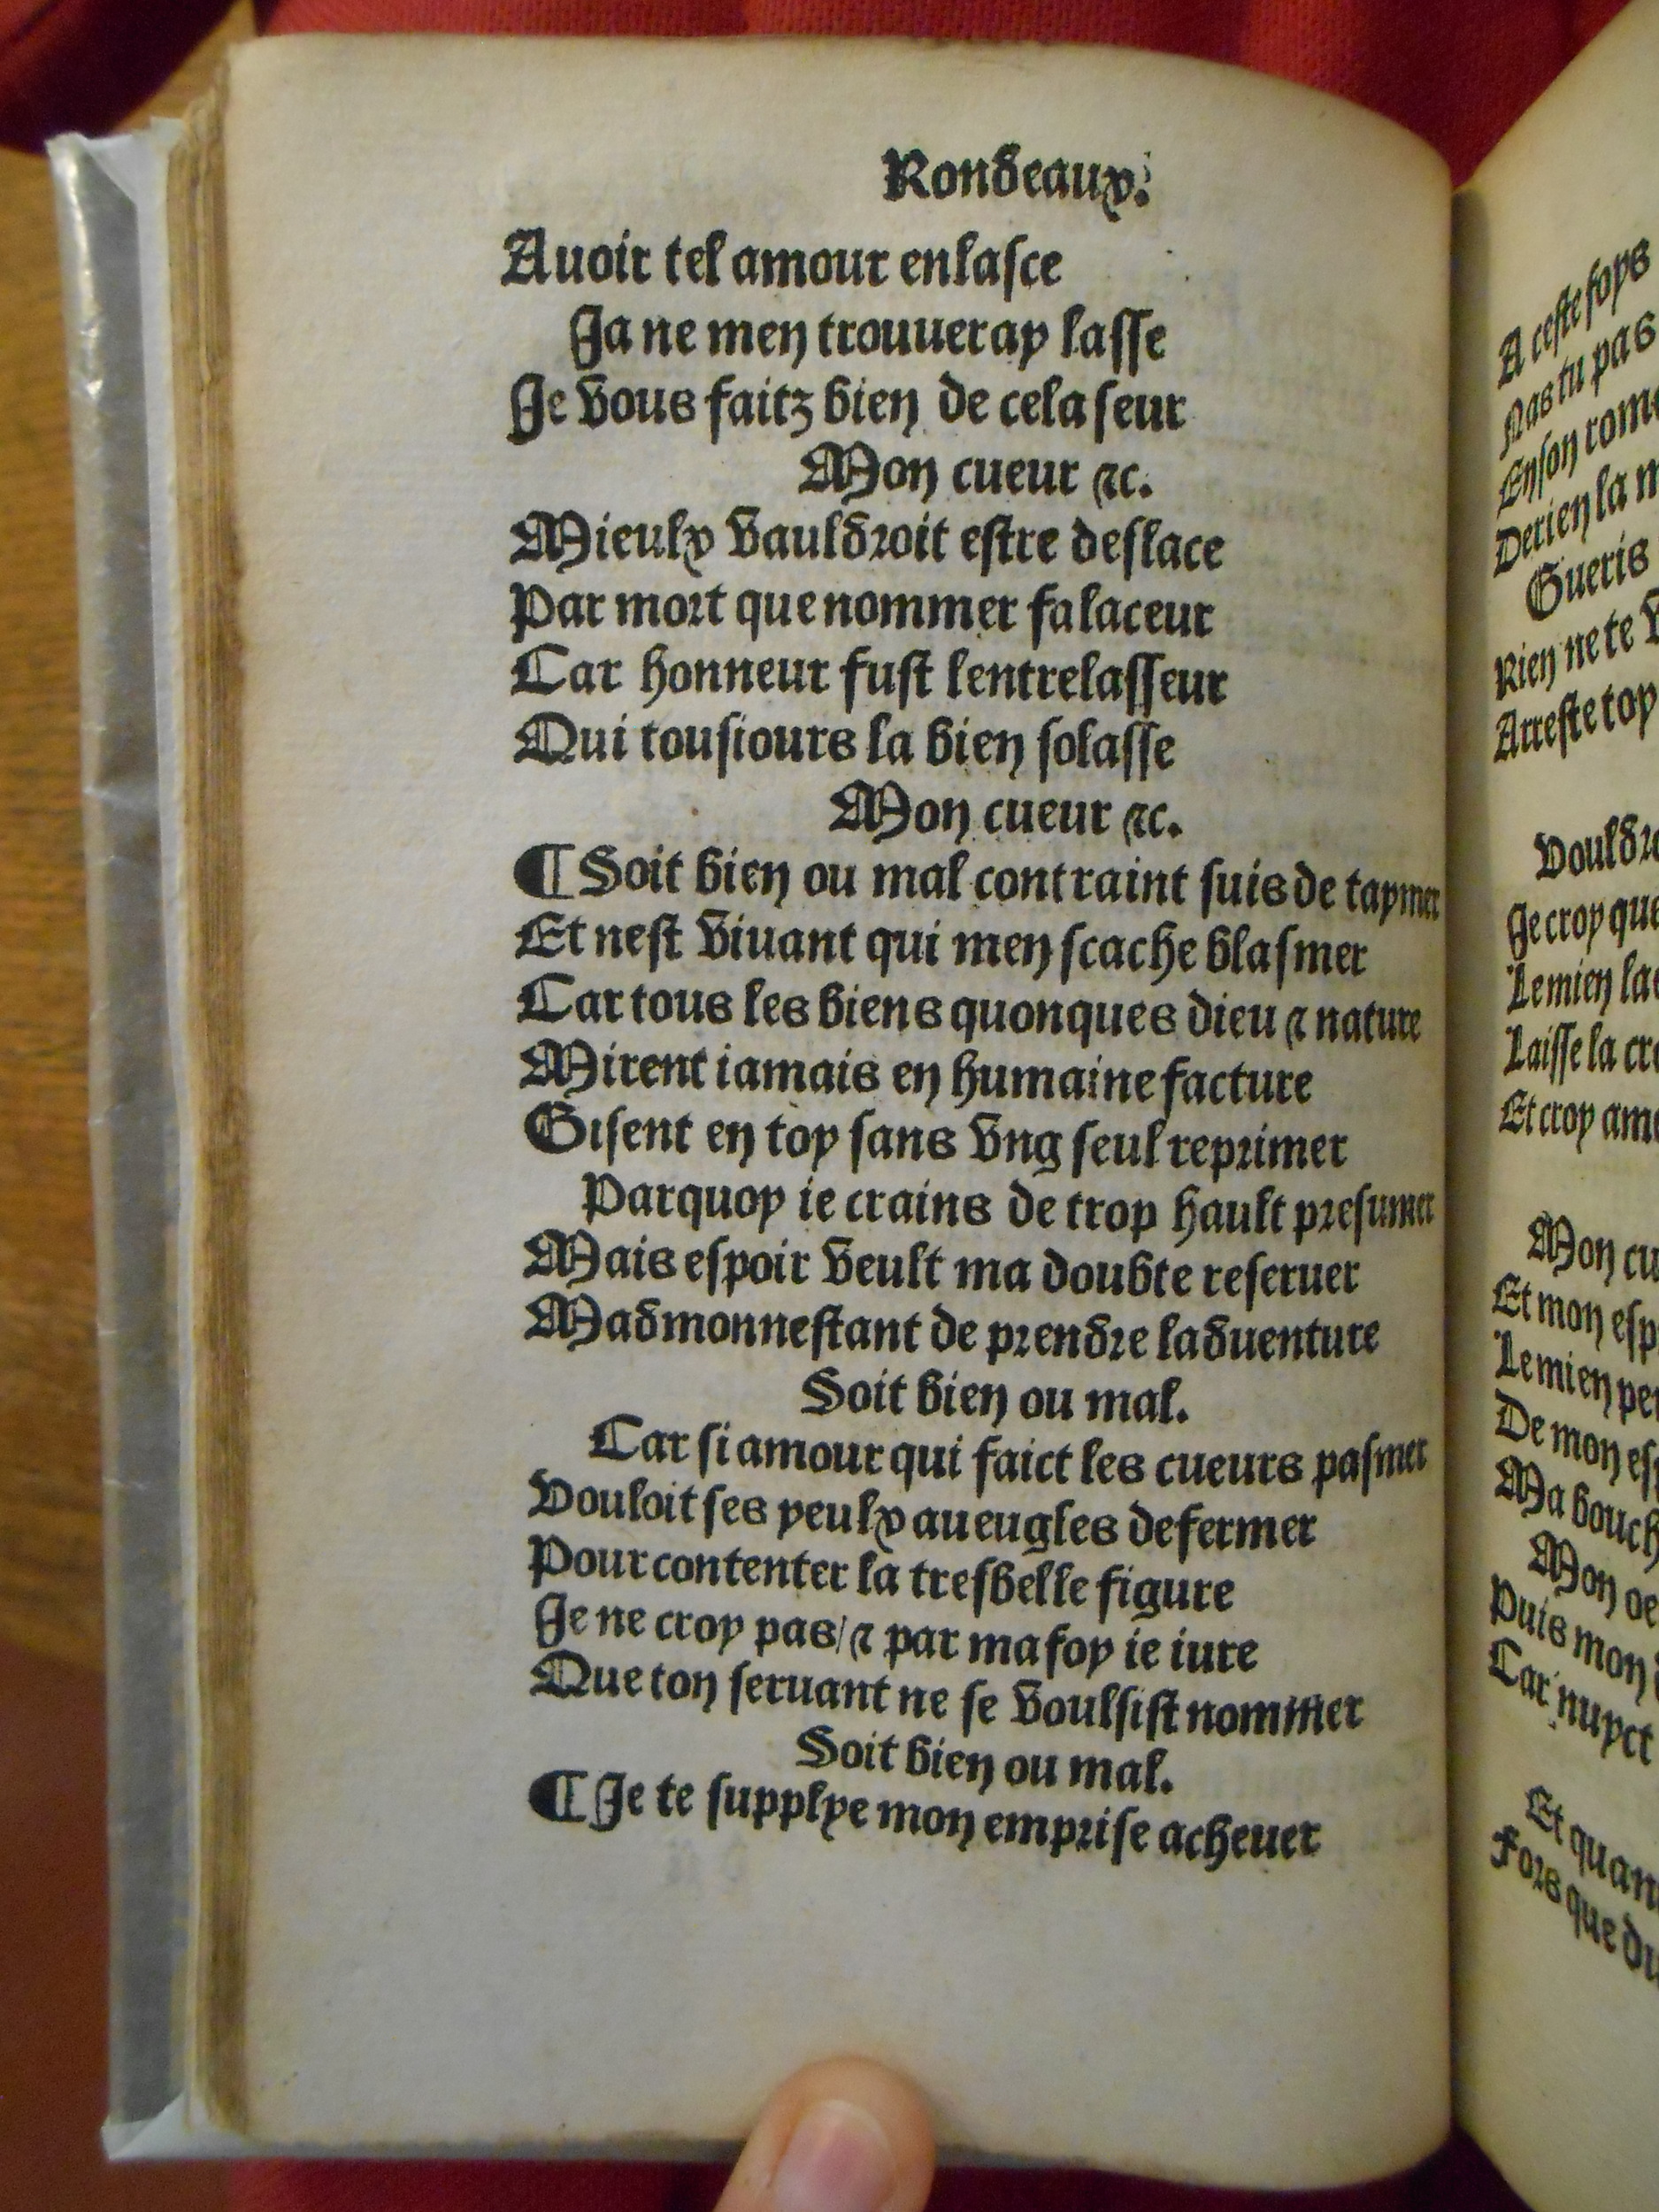 Rondeaux.
Auoir tel amour enlasce
Ja ne men trouueray lasse
Je vous faitz bien de cela seur
Mon cueur ⁊c.
Mieulx vauldroit estre deslace
Par mort que nommer falaceur
Car honneur fust lentrelasseur
Qui tousiours la bien solasse
Mon cueur ⁊c.
¶ Soit bien ou mal contraint suis de taymer
Et nest viuant qui men scache blasmer
Car tous les biens quonques dieu ⁊ nature
Mirent iamais en humaine facture
Gisent en toy sans vng seul reprimer
Parquoy ie crains de trop hault presumer
Mais espoir veult ma doubte reseruer
Madmonnestant de prendre laduenture
Soit bien ou mal.
Car si amour qui faict les cueurs pasmer
Vouloit ses yeulx aueugles defermer
Pour contenter la tresbelle figure
Je ne croy pas/ ⁊ par ma foy ie iure
Que ton seruant ne se voulsist nommer
Soit bien ou mal.
¶ Je te supplye mon emprise acheuer
A ceste foys
Nas tu pas
En son
De rien la
Gueris
Rien ne te
Arreste toy
Je croy que
Le mien
Laisse la
Et croy
Mon
Et mon
Le mien
De mon
Ma
Mon
Puis mon
Car nuyct
Et
Fors que